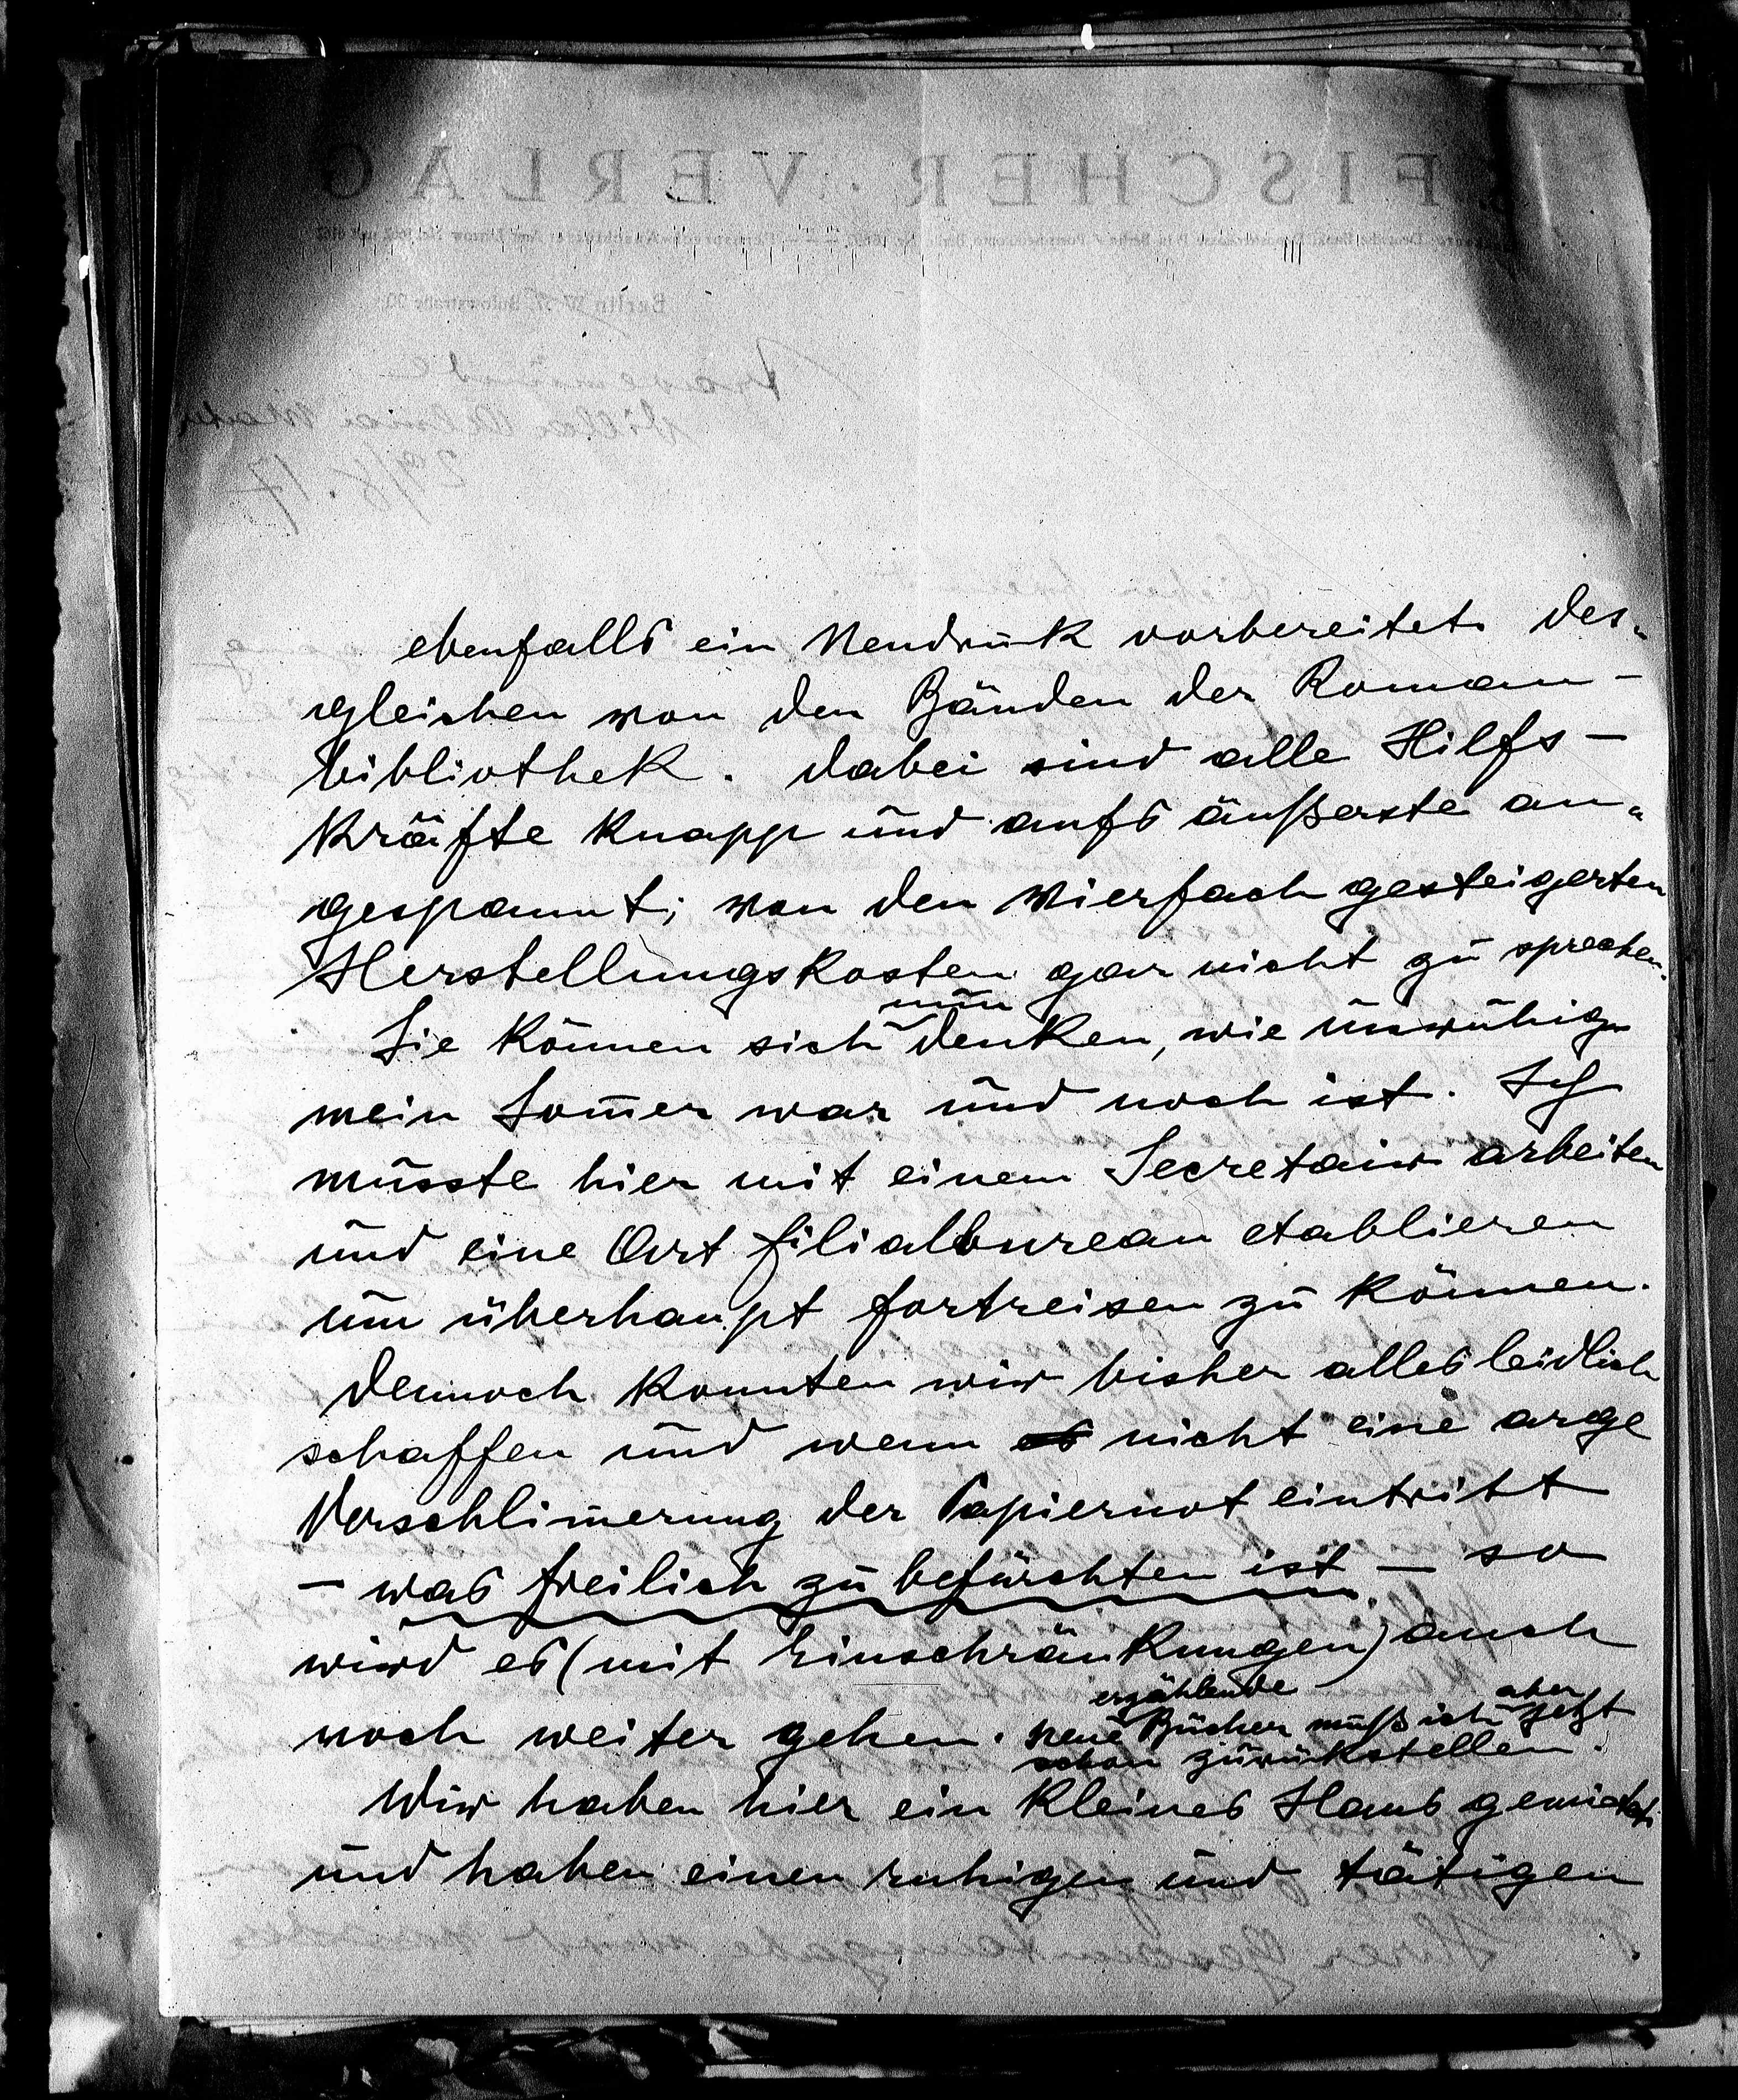 S. FISCHER · VERLAG
Berlin W. 57, Bülowstraße 90
Travemünde
29/8. 17
ebenfalls ein Neudruck vorbereitet. Des-
gleichen von den Bänden der Roman-
bibliothek. Dabei sind alle Hilfs-
kräfte knapp und aufs äußerste an-
gespannt; von den vierfach gesteigerten
Herstellungskosten gar nicht zu sprechen.
Sie können sich nun denken, wie unruhig
mein Som̅er war und noch ist. Ich
musste hier mit einem Secretair arbeiten
und eine Art Filialbureau etablieren
um überhaupt fortreisen zu können.
Dennoch konnten wir bisher alles leidlich
schaffen und wenn es nicht eine arge
Verschlim̅erung der Papiernot eintritt
– was freilich zu befürchten ist – so
wird es (mit Einschränkungen) auch
noch weiter gehen. Neue erzählende Bücher muß ich aber jetzt
schon zurückstellen.
Wir haben hier ein kleines Haus gemietet
und haben einen ruhigen und tätigen